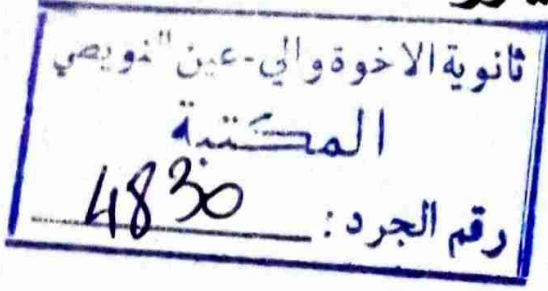 ثانوية الاخوة والي-عين النويصي
المكتبة
رقم الجرد: 4830